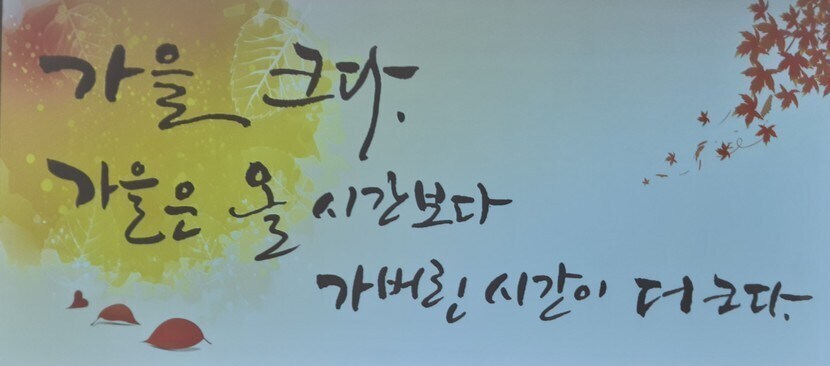 가을 크다.
가을은 올 시간보다
가버린 시간이 더 크다.